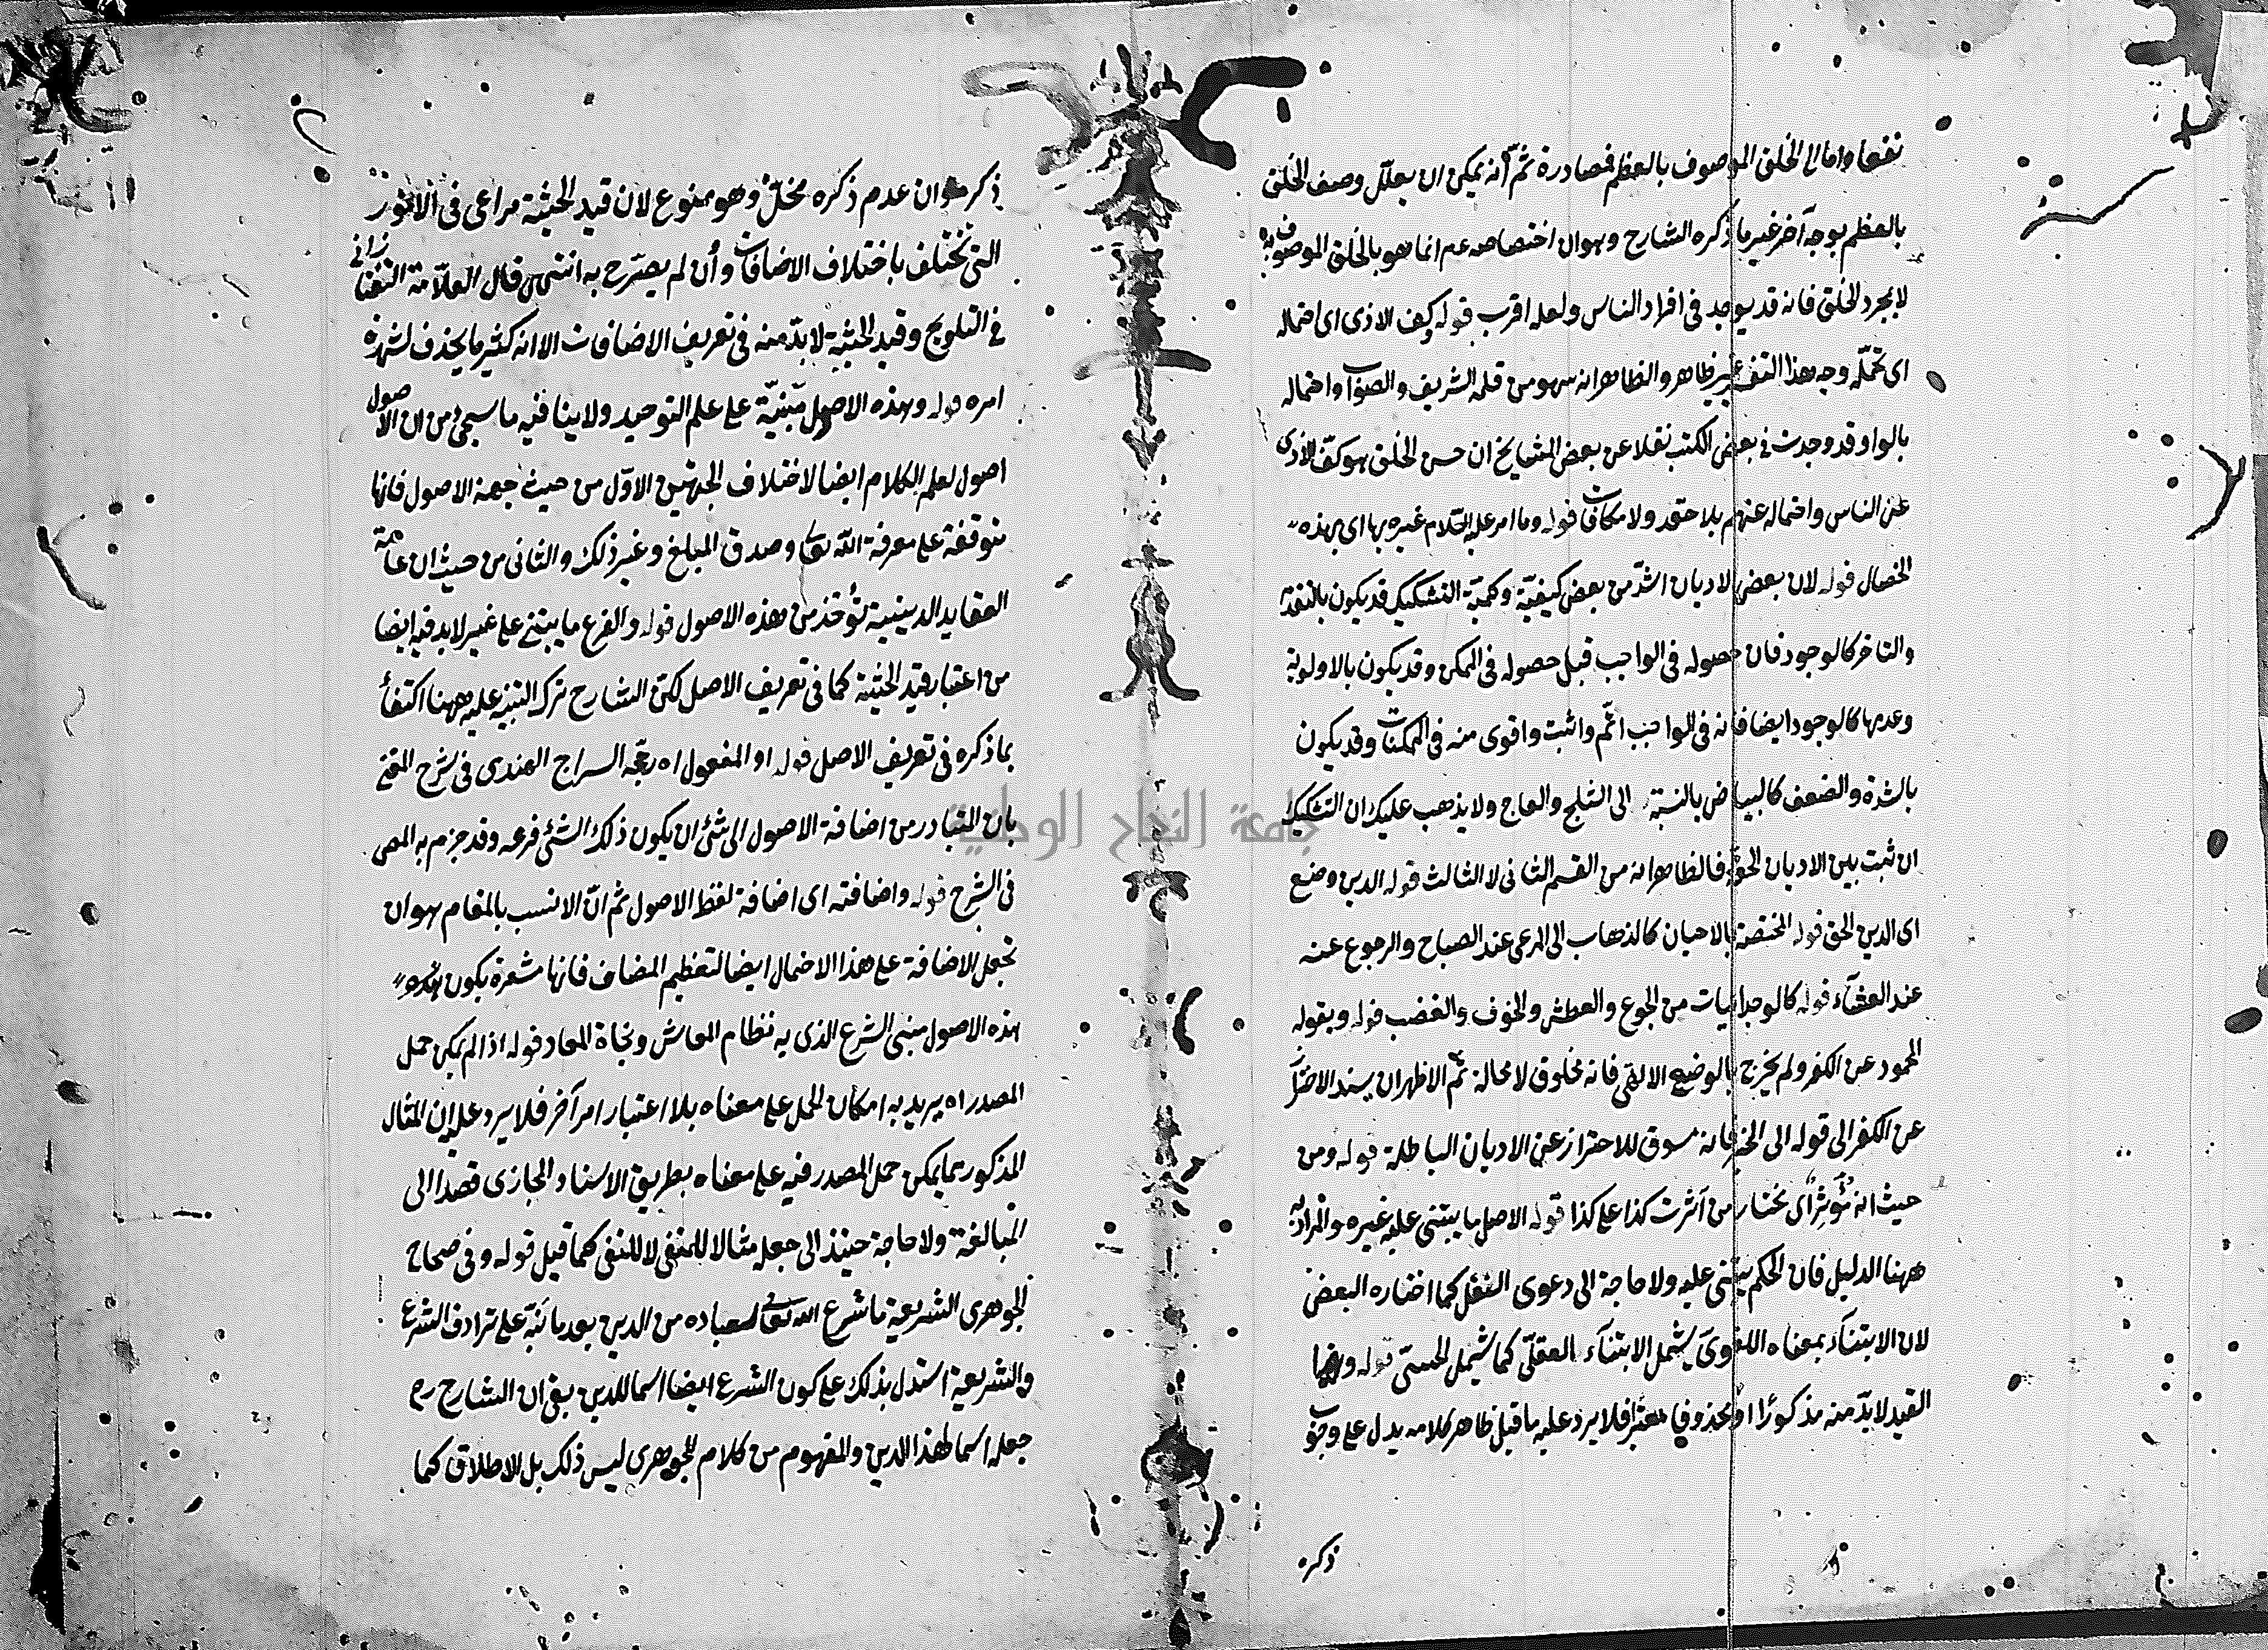 نفعها واما الى الخلق الموصوف بالعظم فمصادرة ثمّ انه يمكن ان يعلّل وصف الخلق
بالعظم بوجه آخر غير ما ذكره الشارح وهو ان اختصاصه عم انما هو بالخلق الموصوف به
لا بمجرد الخلق فانه قد يوجد في افراد الناس ولعله اقرب قوله كف الاذى اى احتماله
اى تحمّله وجه هذا غير ظاهر والظاهر انه سهو من قلمه الشريف والصواب واحتماله
بالواو وقد وجدت في بعض الكتب نقلا عن بعض المشايخ ان حسن الخلق هو كفّ الاذى
عن الناس واحتماله عنهم بلا حقد ولا مكافات قوله وما امر عليه السّلام غيره بها اى بهذه
الخصال قوله لان بعض الاديان اشدّ من بعض كيفيّة وكميّة التشكيك قد يكون بالتقدّم
والتاخر كالوجود فان حصوله في الواجب قبل حصوله في الممكن وقد يكون بالاولوية
وعدمها كالوجود ايضا فانه في الواجب اتمّ واثبت واقوى منه في الممكنات وقد يكون
بالشدّة والضعف كالبياض بالنسبة الى الثلج والعاج ولا يذهب عليك ان التشكيك
ان ثبت بين الاديان الحقّة فالظاهر انه من القسم الثانى لا الثالث قوله الدين وضع
اى الدين الحق قوله المختصة بالاحيان كالذهاب الى المرعى عند الصباح والرجوع عنه
عند العشآء قوله كالوجدانيات من الجوع والعطش والخوف والغضب قوله وبقوله
المحمود عن الكفر ولم يخرج بالوضع الالهى فانه مخلوق لا محالة ثم الاظهر ان يسند الاحتراز
عن الكفر الى قوله الى الخير فانه مسوق للاحتراز عن الاديان الباطلة قوله ومن
حيث انه مؤثر اى مختار من آثرت كذا على كذا قوله الاصل ما يبتنى عليه غيره والمراد به
ههنا الدليل فان الحكم يبتنى عليه ولا حاجة الى دعوى النقل كما اختاره البعض
لان الابتنآء بمعناه اللغوى يشمل الابتنآء العقلىّ كما يشمل الحسىّ قوله وهذا
القيد لابدّ منه مذكورًا او محذوفا معتبرا فلا يرد عليه ما قيل ظاهر كلامه يدل على وجوب
ذكره
ذكره وان عدم ذكره مخلّ وهو ممنوع لان قيد الحيثية مراعى في الامور
التى تختلف باختلاف الاضافات وأن لم يصرّح به انتهى قال العلّامة التفتازانى
في التلويح وقيد الحيثية لابدّ منه في تعريف الاضافات الا انه كثير ما يحذف لشهرة
امره قوله وهذه الاصول مبنيّة على علم التوحيد ولا ينافيه ما سيجئ من ان الاصول
اصول لعلم الكلام ايضا لاختلاف الجهتين الاوّل من حيث جهة الاصول فانها
متوقفة على معرفة اللّه تعالى وصدق المبلغ وغير ذلك والثانى من حيث ان عامّة
العقايد الدينية تؤخذ من هذه الاصول قوله والفرع ما يبتنى على غيره لابد فيه ايضا
من اعتبار قيد الحيثية كما في تعريف الاصل لكن الشارح ترك التنبيه عليه ههنا اكتفأ
بما ذكره في تعريف الاصل قوله او المفعول اه رجّحه السراج الهندى في شرح المغنى
بان المتبادر من اضافة الاصول الى شئ ان يكون ذلك الشئ فرعه وقد جزم به المص
في الشرح قوله واضافته اى اضافة لفظ الاصول ثم انّ الانسب بالمقام هو ان
تجعل الاضافة على هذا الاحتمال ايضا لتعظيم المضاف فانها مشعرة بكون
هذه الاصول مبنى الشرع الذى به نظام المعاش ونجاة المعاد قوله اذا لم يمكن حمل
المصدر اه يريد به امكان الحمل على معناه بلا اعتبار امر آخر فلا يرد عليه ان المثال
المذكور مما يمكن حمل المصدر فيه على معناه بطريق الاسناد المجازى قصدا الى
المبالغة ولا حاجة حينئذ الى جعله مثالا للمنفى لا للنفى كما قيل قوله وفي صحاح
الجوهرى الشريعة ما شرع اللّه تعالى لعباده من الدين بعد ما نبّه على ترادف الشرع
والشريعة استدل بذلك على كون الشرع ايضا اسما للدين بقى ان الشارح ره
جعله اسما لهذا الدين والمفهوم من كلام الجوهرى ليس ذلك بل الاطلاق كما
جامعة النجاح الوطنية